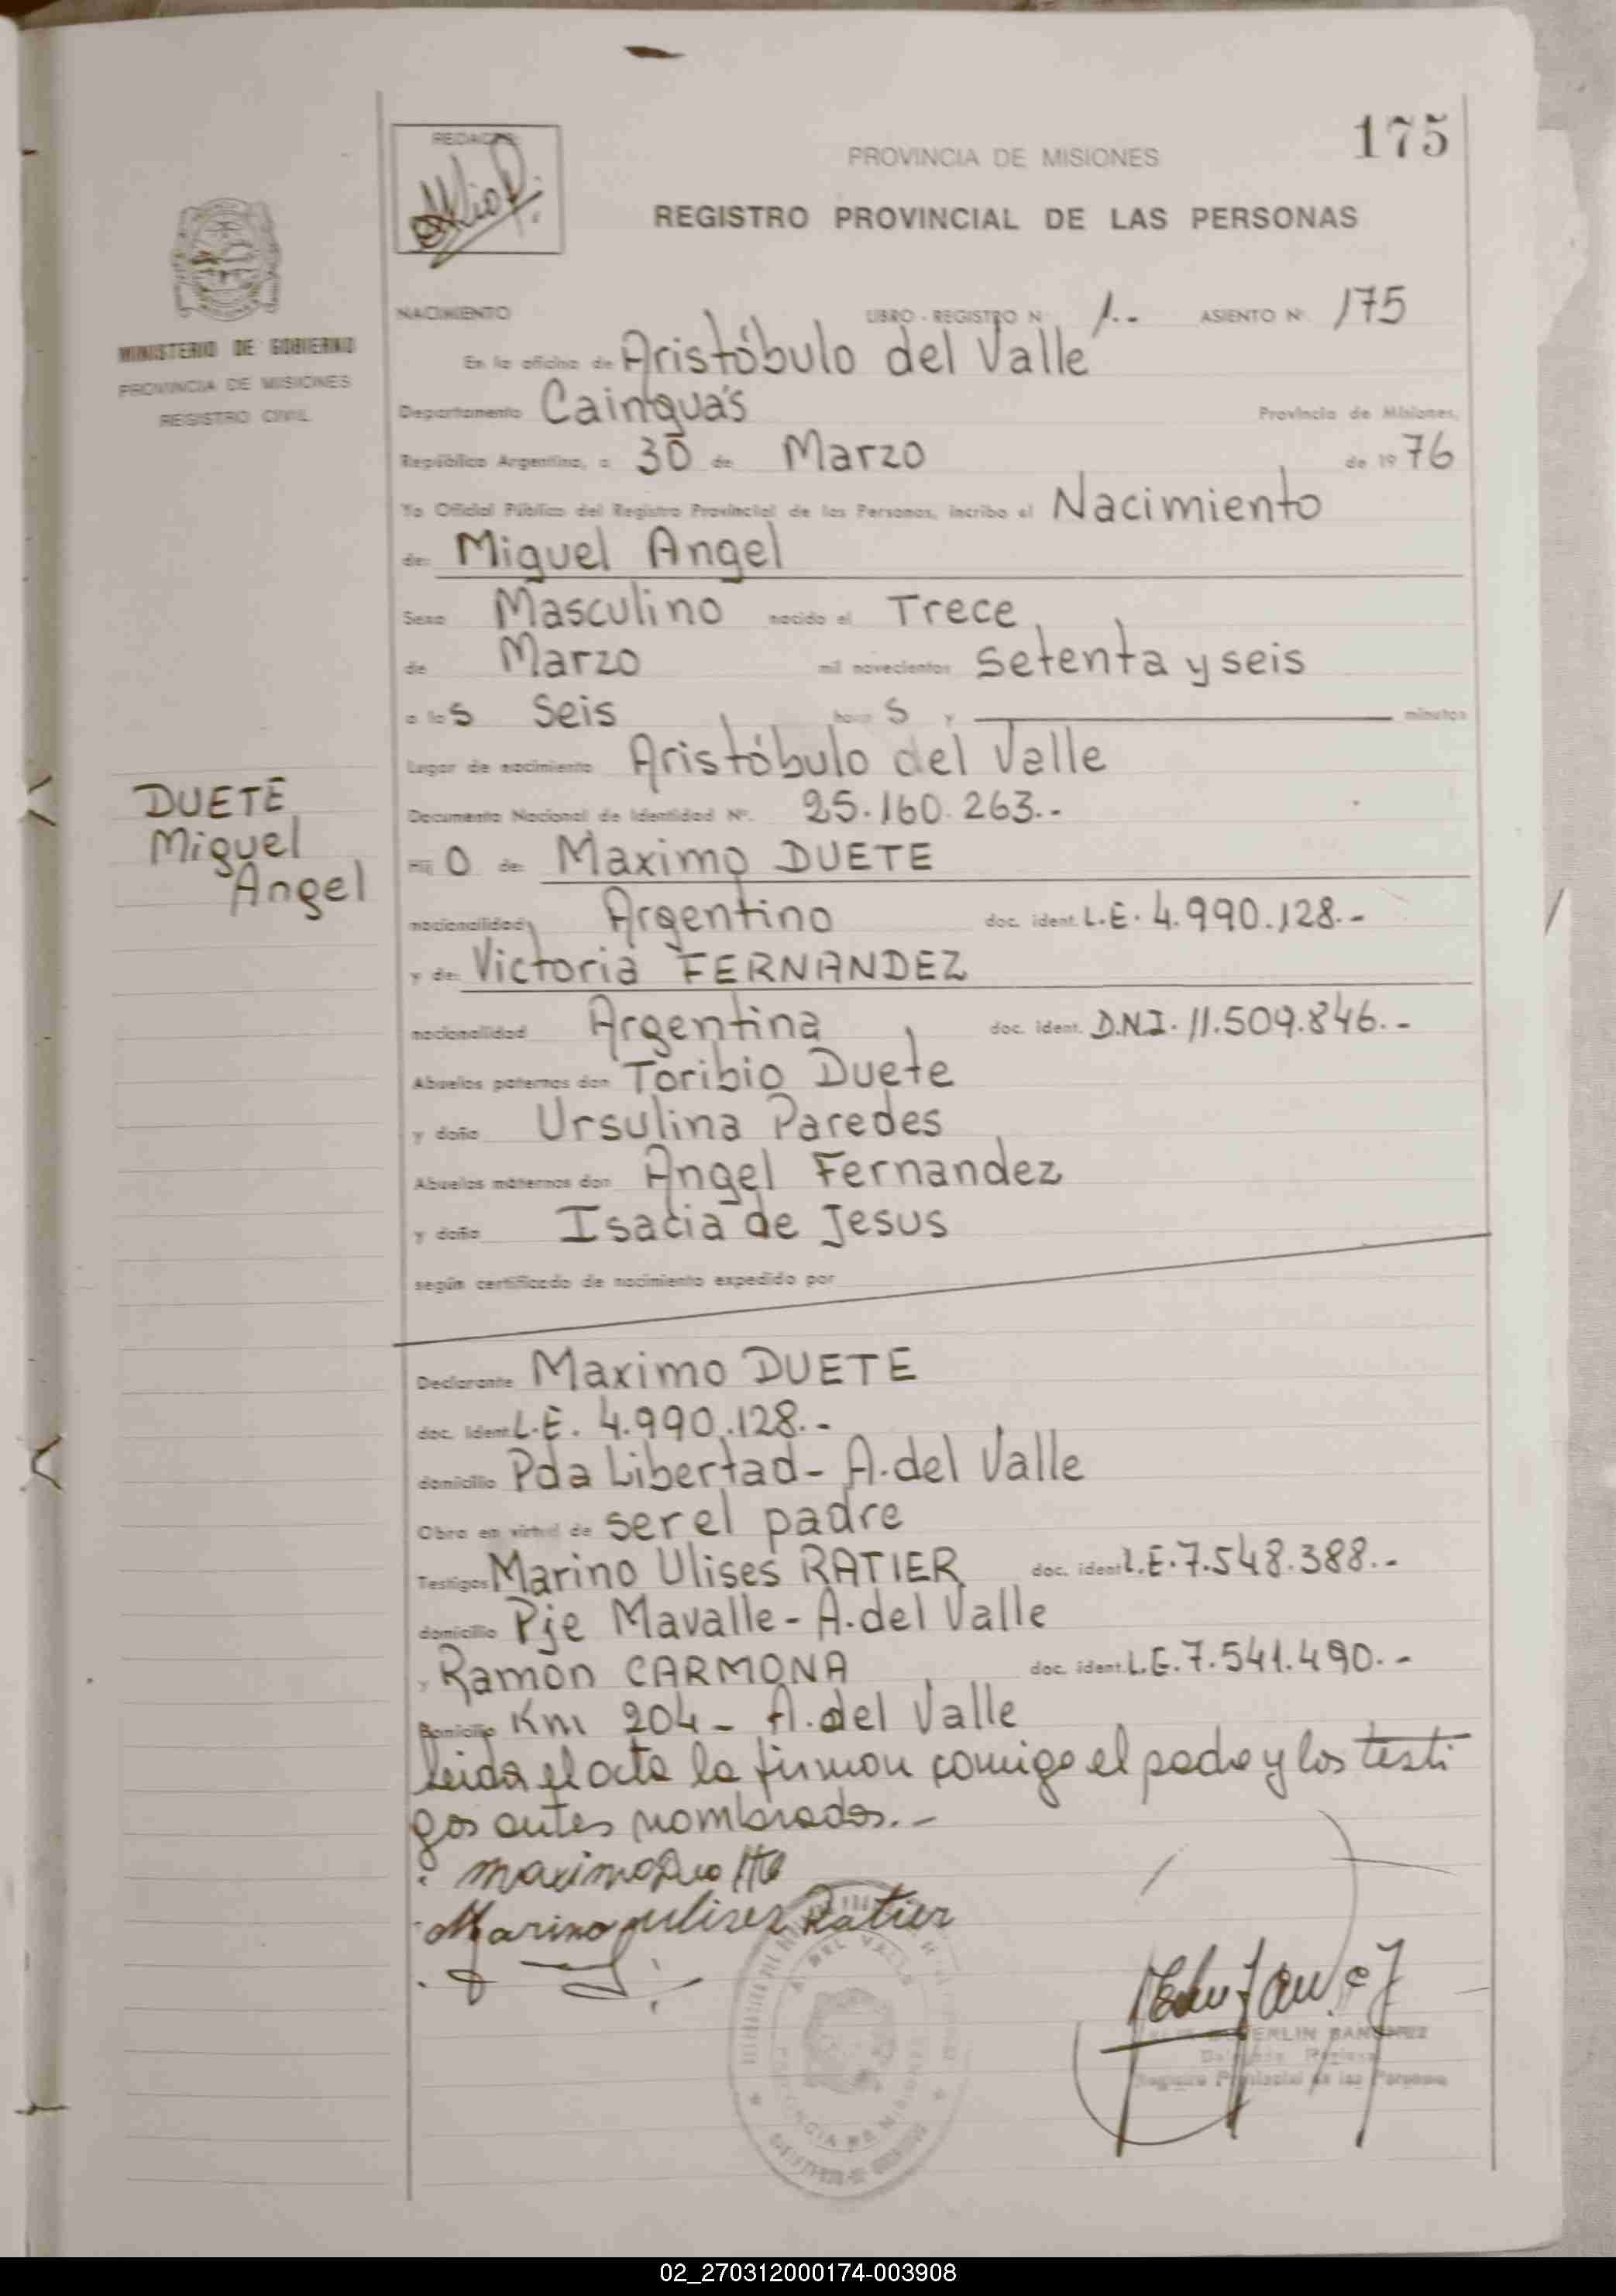 175
REDACTO:
PROVINCIA DE MISIONES
REGISTRO PROVINCIAL DE LAS PERSONAS
MINISTERIO DE GOBIERNO
PROVINCIA DE MISIONES
REGISTRO CIVIL
NACIMIENTO LIBRO - REGISTRO N° 1.- ASIENTO N° 175
En la oficina de Aristóbulo del Valle
Departamento Cainguás Provincia de Misiones,
República Argentina, a 30 de Marzo de 19 76
Yo Oficial Público del Registro Provincial de las Personas, inscribo el Nacimiento
de: Miguel Angel
Sexo Masculino nacido el Trece
de Marzo mil novecientos setenta y seis
a las Seis horas y minutos
Lugar de nacimiento Aristóbulo del Valle
DUETE
Miguel
Angel
Documento Nacional de Identidad N°. 25.160.263.-
Hijo de: Maximo DUETE
nacionalidad Argentino doc. ident. L.E. 4.990.128.-
y de: Victoria FERNANDEZ
nacionalidad Argentina doc. ident. D.N.I. 11.509.846.-
Abuelos paternos don Toribio Duete
y doña Ursulina Paredes
Abuelos maternos don Angel Fernandez
y doña Isacia de Jesus
según certificado de nacimiento expedido por
Declarante Maximo DUETE
doc. ident. L.E. 4.990.128.-
domicilio Pda Libertad - A. del Valle
Obra en virtud de ser el padre
Testigos Marino Ulises RATIER doc. ident. L.E. 7.548.388.-
domicilio Pje Mavalle - A. del Valle
y Ramón CARMONA doc. ident. L.E. 7.541.490.-
Domicilio Km 204 - A. del Valle
leida el acta la firman comigo el padre y los testi
gos antes nombrados.-
Marino Ulises Ratier
A. DEL VALLE
PROVINCIA DE MISIONES
MINISTERIO DE GOBIERNO
Registro Provincial de las Personas
02_270312000174-003908